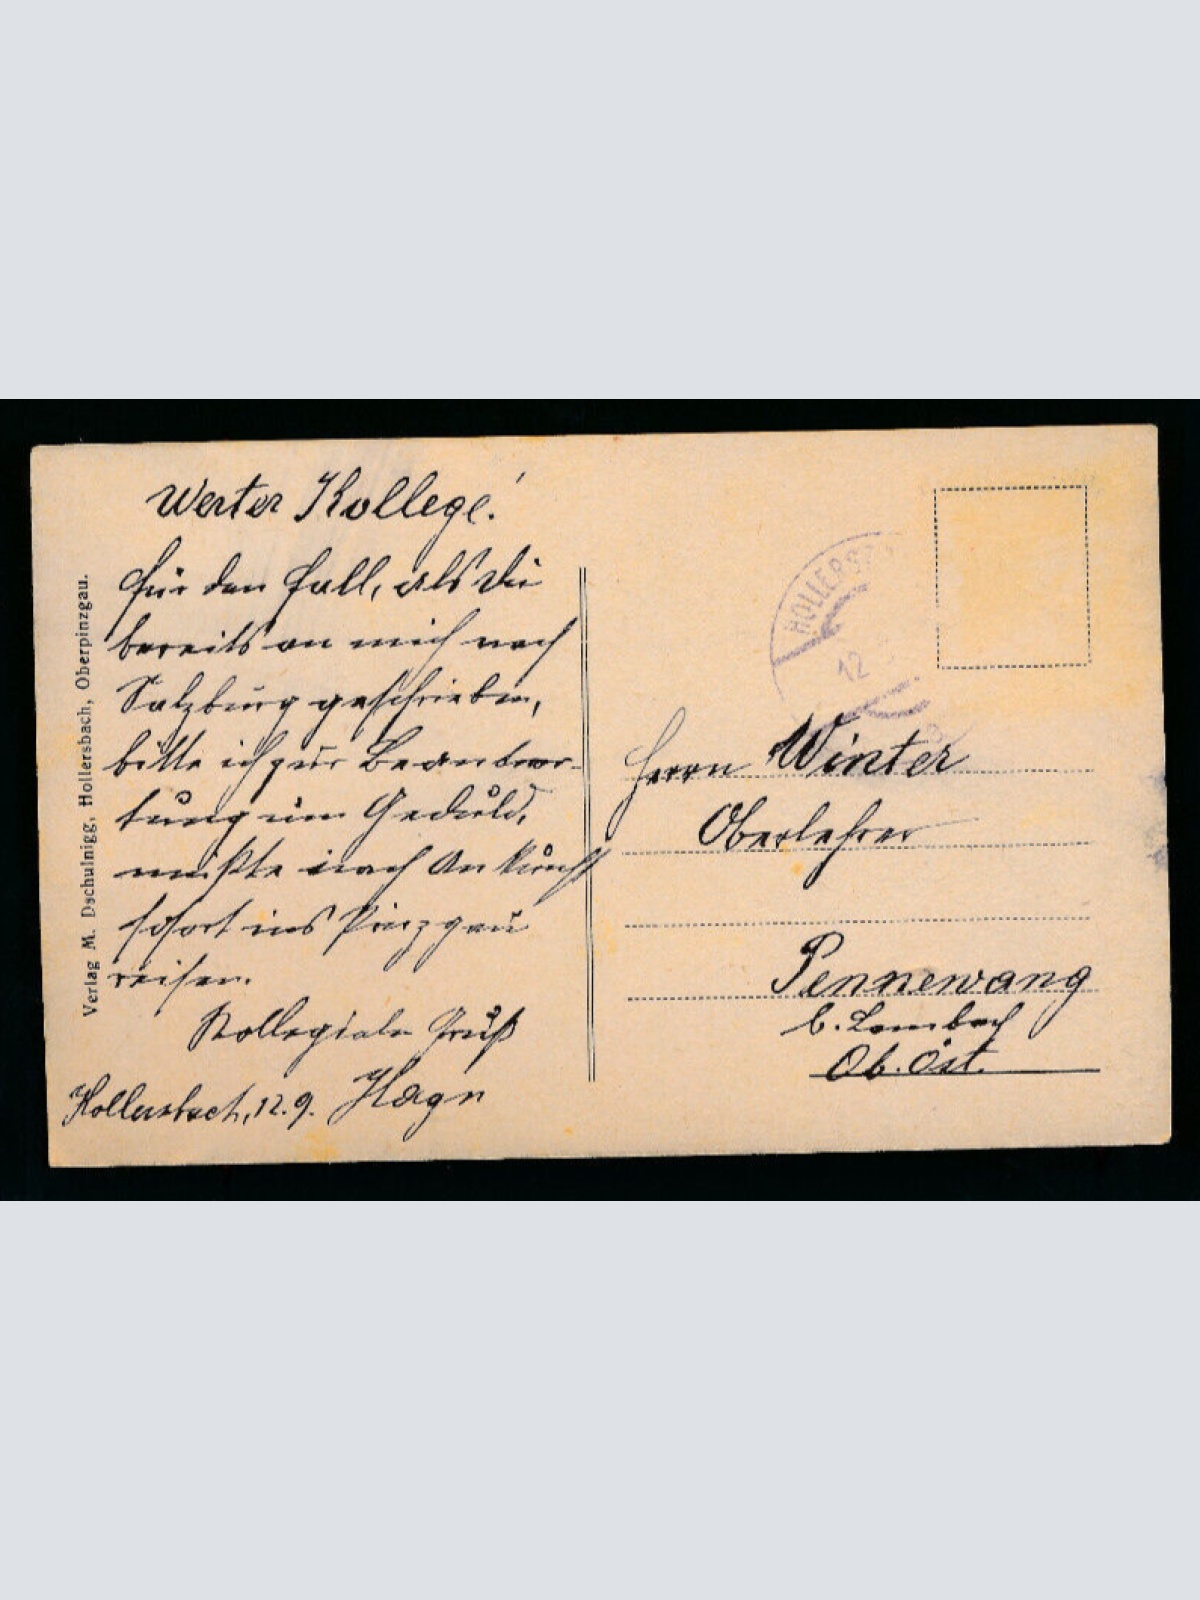 Werter Kollege!
für den Fall, als Du
bereits an mich nach
Salzburg geschrieben,
bitte ich zur Beantwor-
tung um Geduld,
mußte nach Ankunft
sofort ins Pinzgau
reisen.
Kollegiale Gruß
Hollersbach, 12.9. Hagn
Verlag M. Dschulnigg, Hollersbach, Oberpinzgau.
12
Herrn Winter
Oberlehrer
Pennewang
b. Lambach
Ob. Öst.